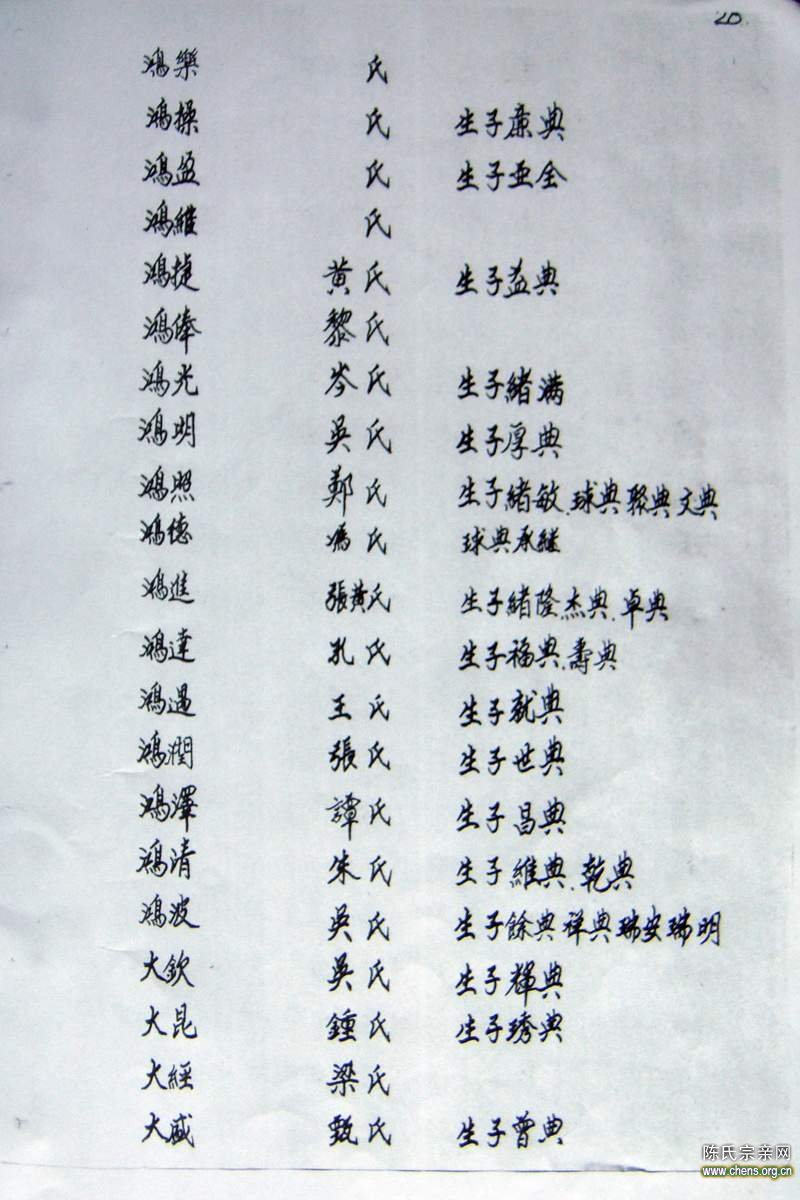 20
鴻樂 氏
鴻操 氏 生子廉典
鴻盈 氏 生子亜全
鴻維 氏
鴻捷 黄氏 生子益典
鴻俸 黎氏
鴻光 岑氏 生子緒满
鴻明 吳氏 生子厚典
鴻照 鄭氏 生子緒敏.球典聚典文典
鴻德 馮氏 球典承継
鴻進 張黄氏 生子緒隆.杰典.卓典
鴻達 孔氏 生子福典.壽典
鴻遇 王氏 生子就典
鴻潤 張氏 生子世典
鴻澤 譚氏 生子昌典
鴻清 朱氏 生子維典.乾典
鴻波 吳氏 生子餘典祥典瑞安瑞明
大欽 吳氏 生子輝典
大昆 鍾氏 生子琇典
大經 梁氏
大威 甄氏 生子曾典
陈氏宗亲网
www.chens.org.cn